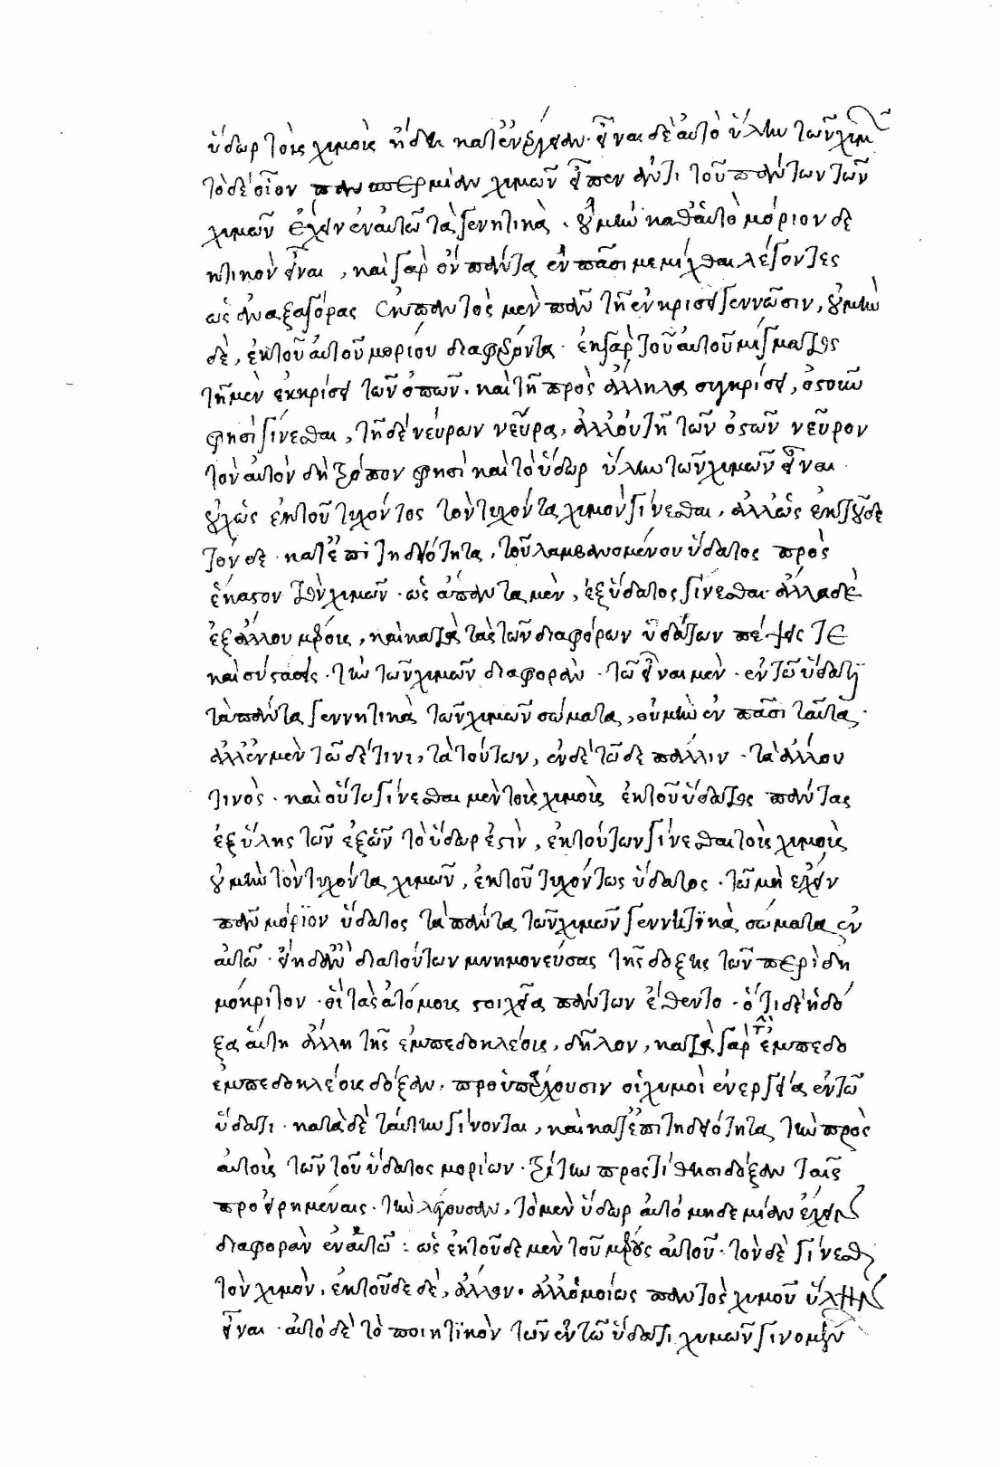 ὕδωρ τοὺς χυμοὺς ἤδη κατ' ἐνέργειαν· εἶναι δὲ αὐτὸ ὕλην τῶν χυμῶν
τὸ δὲ οἷον πανσπερμίαν χυμῶν εἶπεν ἀντὶ τοῦ πάντων τῶν
χυμῶν ἔχειν ἐν αὑτῷ τὰ γεννητικὰ· οὐ μὴν καθ' αὑτὸ μόριον δε
κτικὸν εἶναι, καὶ γὰρ οὖν πάντα ἐν πᾶσι μεμίχθαι λέγοντες
ὡς ἀναξαγόρας ἐκ παντὸς μὲν πᾶν τῇ ἐκκρίσει γεννῶσιν, οὐ μὴν
δὲ, ἐκ τοῦ αὐτοῦ μορίου διαφέροντα· ἐκ γὰρ τοῦ αὐτοῦ μίγματος
τῇ μὲν ἐκκρίσει τῶν ὀστῶν· καὶ τῇ πρὸς ἄλληλα συγκρίσει, ὀστοῦν
φησὶ γίνεσθαι, τῇ δὲ νεύρων νεῦρα, ἀλλ' οὐ τῇ τῶν ὀστῶν νεῦρον
τὸν αὐτὸν δὴ τρόπον φησὶ καὶ τὸ ὕδωρ ὕλην τῶν χυμῶν εἶναι·
οὐχ ὡς ἐκ τοῦ τυχόντος τὸν τυχόντα χυμὸν γίνεσθαι, ἀλλ' ὡς ἐκ τοῦδε
τόνδε· κατ' ἐπιτηδειότητα, τοῦ λαμβανομένου ὕδατος πρὸς
ἕκαστον τῶν χυμῶν· ὡς ἅπαντα μὲν, ἐξ ὕδατος γίνεσθαι· ἄλλα δὲ
ἐξ ἄλλου μέρους, καὶ κατὰ τὰς τῶν διαφόρων ὑδάτων πέψεις τε
καὶ συστάσεις· τὴν τῶν χυμῶν διαφορὰν· τῷ εἶναι μὲν· ἐν τῷ ὕδατι
τὰ πάντα γεννητικὰ τῶν χυμῶν σώματα, οὐ μὴν ἐν πᾶσι ταῦτα·
ἀλλ' ἐν μὲν τῷδέ τινι, τὰ τούτων, ἐν δὲ τῷδε πάλιν· τὰ ἄλλου
τινὸς· καὶ οὕτω γίνεσθαι μὲν τοὺς χυμοὺς ἐκ τοῦ ὕδατος πάντας
ἐξ ὕλης τῶν ἐξ ὧν τὸ ὕδωρ ἐστὶν, ἐκ τούτων γίνεσθαι τοὺς χυμοὺς
οὐ μὴν τὸν τυχόντα χυμῶν, ἐκ τοῦ τυχόντως ὕδατος· τῷ μὴ ἔχειν
πᾶν μόριον ὕδατος τὰ πάντα τῶν χυμῶν γεννητικὰ σώματα ἐν
αὑτῷ· εἴη δ' ἂν διὰ τούτων μνημονεύσας τῆς δόξης τῶν περὶ δη
μόκριτον· οἳ τὰς ἀτόμους στοιχεῖα πάντων ἔθεντο· ὅτι δὲ ἡ δό
ξα αὕτη ἄλλη τῆς ἐμπεδοκλέους, δῆλον, κατὰ γὰρ τὴν ἐμπεδο
ἐμπεδοκλέους δόξαν· προϋπάρχουσιν οἱ χυμοὶ ἐνεργείᾳ ἐν τῷ
ὕδατι· κατὰ δὲ ταύτην γίνονται, καὶ κατ' ἐπιτηδειότητα τὴν πρὸς
αὐτοὺς τῶν τοῦ ὕδατος μορίων· τρίτην προστίθησι δόξαν ταῖς
προειρημέναις· τὴν λέγουσαν, τὸ μὲν ὕδωρ αὐτὸ μηδεμίαν ἔχειν
διαφορὰν ἐν αὑτῷ· ὡς ἐκ τοῦδε μὲν τοῦ μέρους αὐτοῦ· τόνδε γίνεσθαι
τὸν χυμὸν, ἐκ τοῦδε δὲ, ἄλλον· ἀλλ' ὁμοίως παντὸς χυμοῦ ὕλην
εἶναι· αὐτὸ δὲ τὸ ποιητικὸν τῶν ἐν τῷ ὕδατι χυμῶν γινομένων